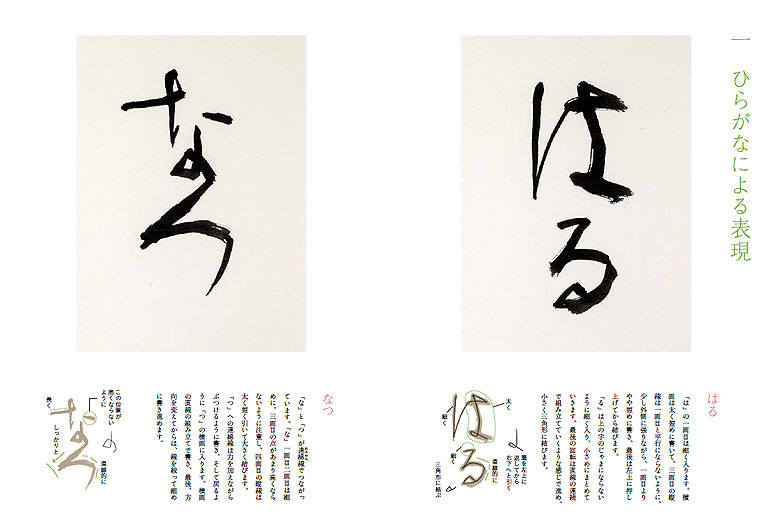 一 ひらがなによる表現
はる
はる
「は」の一画目は細く入ります。横
画は太く短めに書いて、三画目の縦
線は一画目と平行にならないように、
少し外側に張りながら、一画目より
やや短めに書き、最後は左上に押し
上げてから結びます。
「る」は上の字のじゃまにならない
ように細く入り、小さめにまとめて
いきます。最後の回転は直線の連続
で組み立てていくような感じで進め、
小さく三角形に結びます。
太く
細く
細く
筆を左上に
返してから
右方へと引く
直線的に
三角形に結ぶ
なつ
なつ
「な」と「つ」が連綿線でつながっ
ています。「な」一画目二画目は細
めに、三画目の点があまり高くなら
ないように注意し、四画目の縦線は
太く短く引いて大きく結びます。
「つ」への連綿線は力を加えながら
ぶつけるように書き、そして戻るよ
うに「つ」の横画に入ります。横画
の直線の組み立てで書き、最後、方
向を変えてからは、線を絞って細め
に書き進めます。
この位置が
高くならない
ように
長く
しっかりと
直線的に